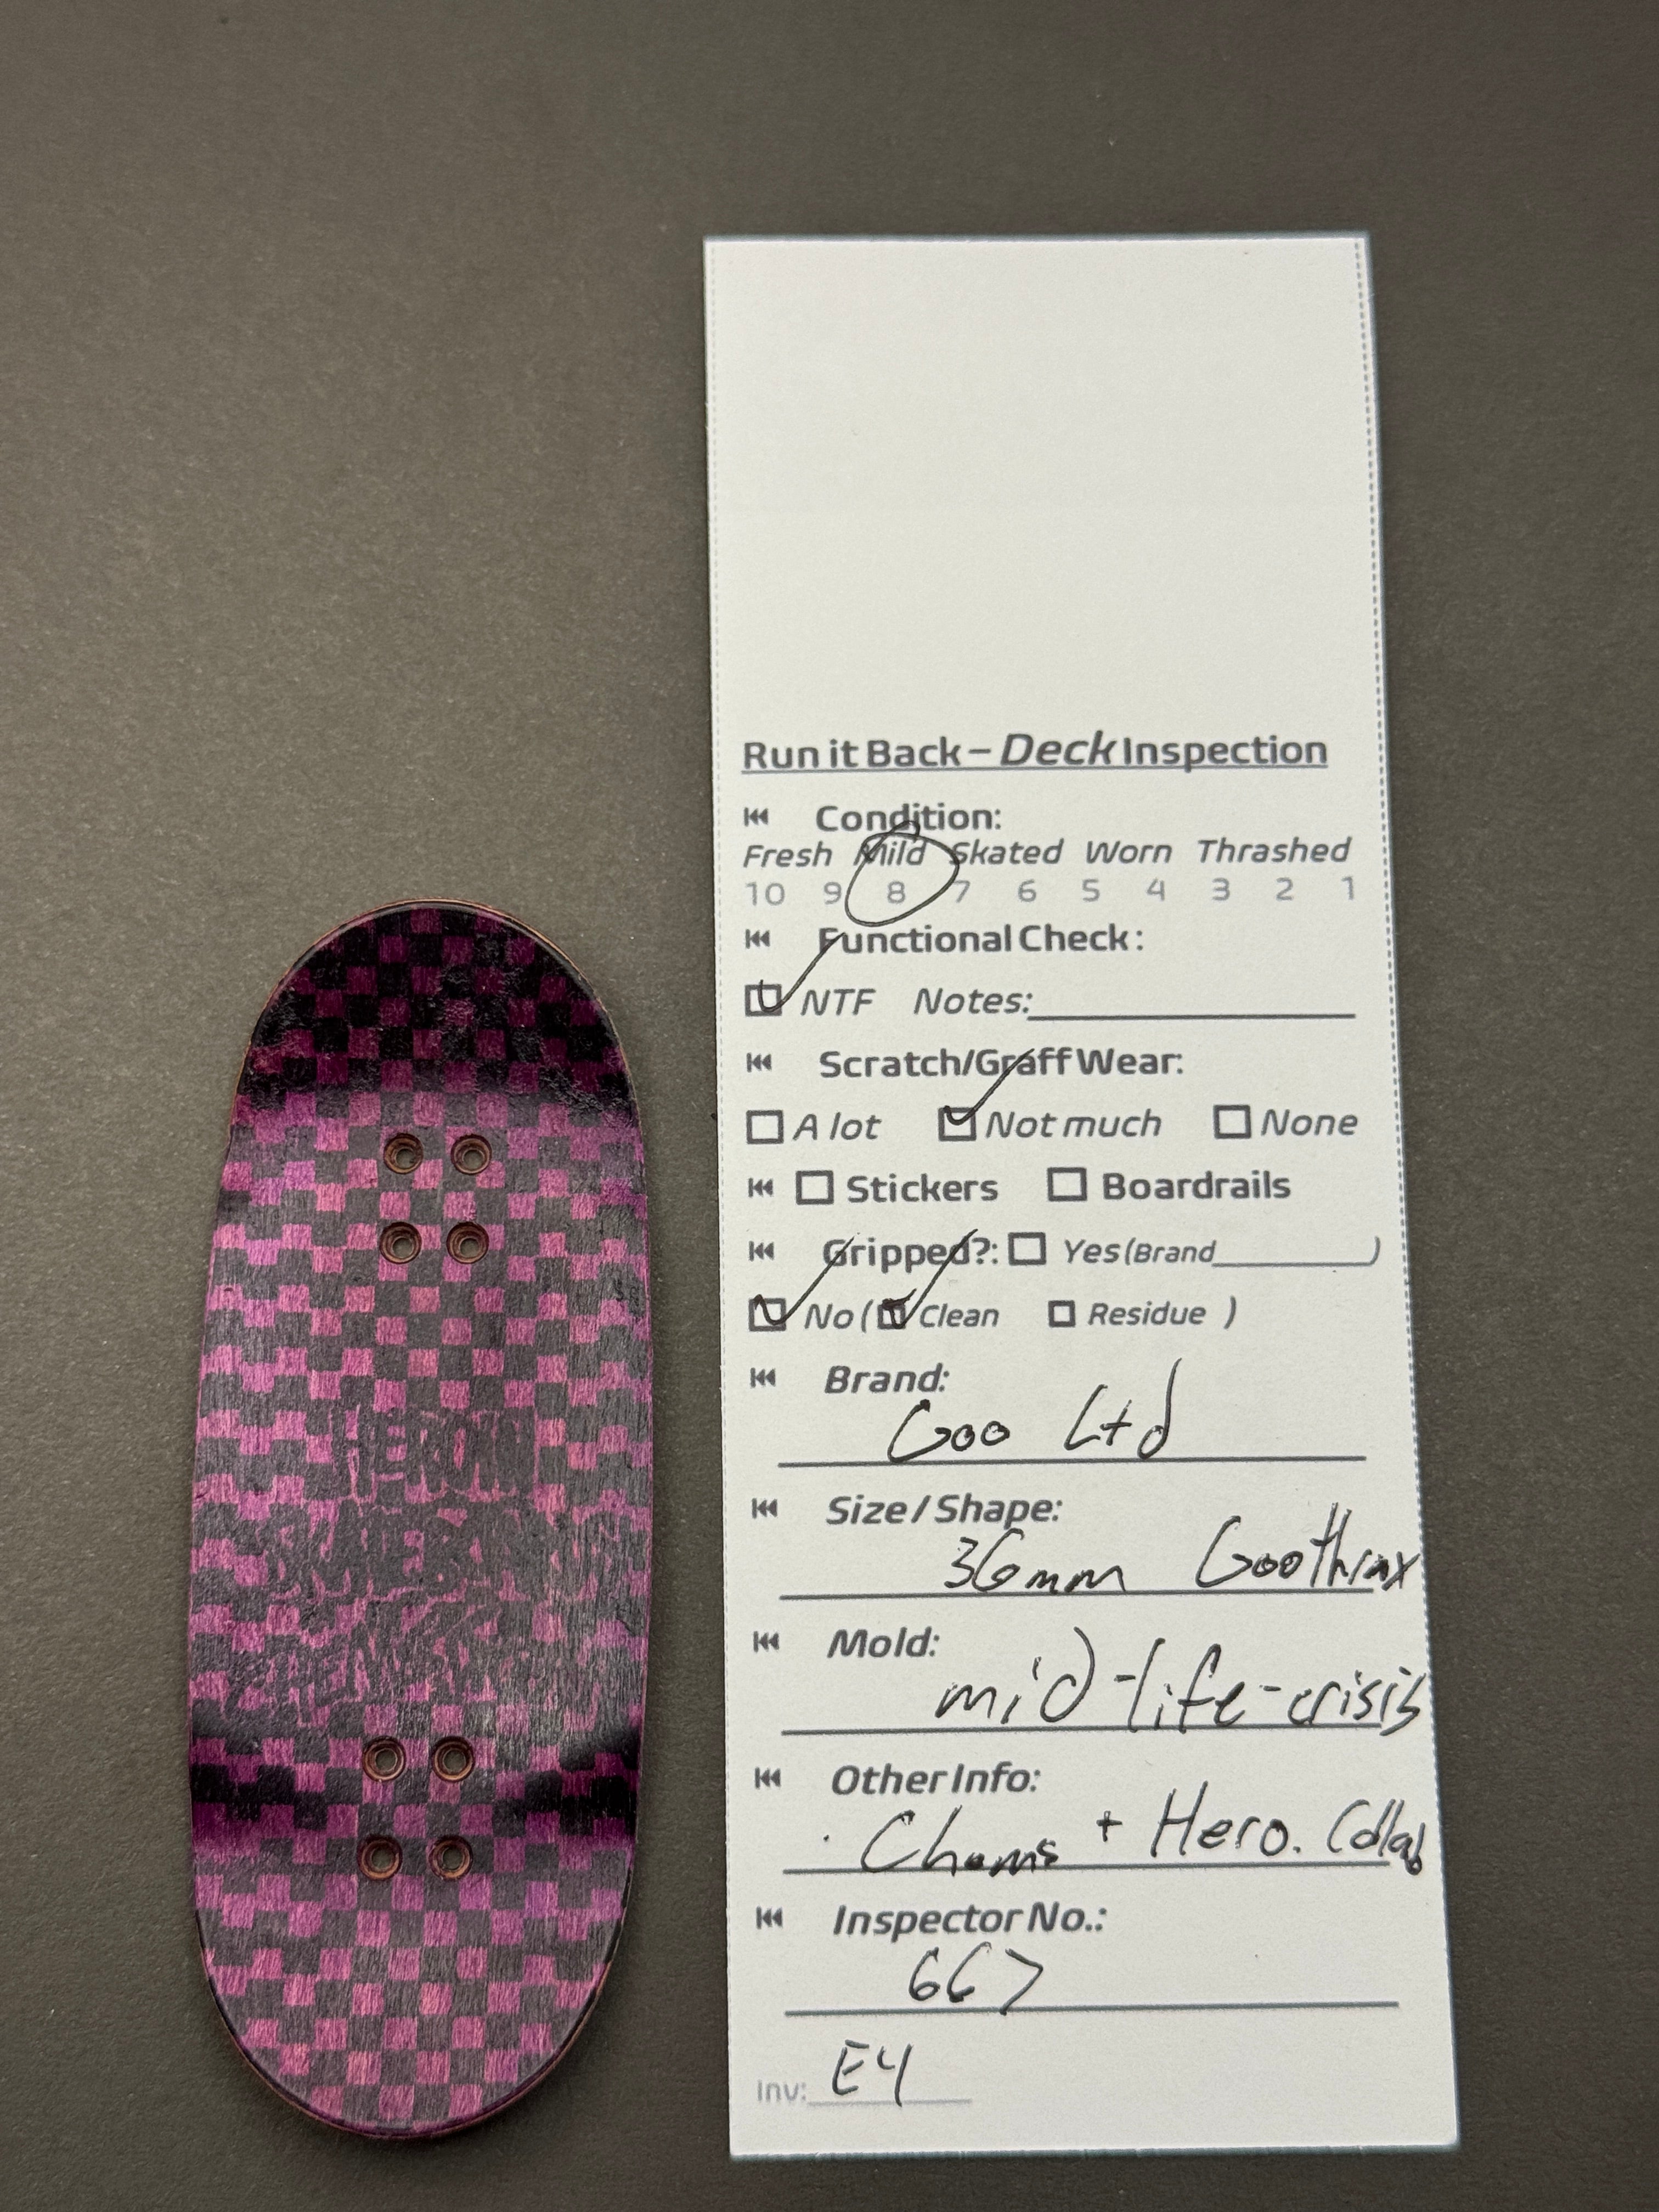 Run it Back – Deck Inspection
Condition:
Fresh Mild Skated Worn Thrashed
10 9 8 7 6 5 4 3 2 1
Functional Check:
NTF Notes:
Scratch/Graff Wear:
A lot Not much None
Stickers Boardrails
Gripped?: Yes (Brand )
No ( Clean Residue )
Brand:
Goo Ltd
Size / Shape:
36mm Goothrax
Mold:
mid-life-crisis
Other Info:
+ Hero. Collab
Inspector No.:
667
Inv: E4
HEROIN